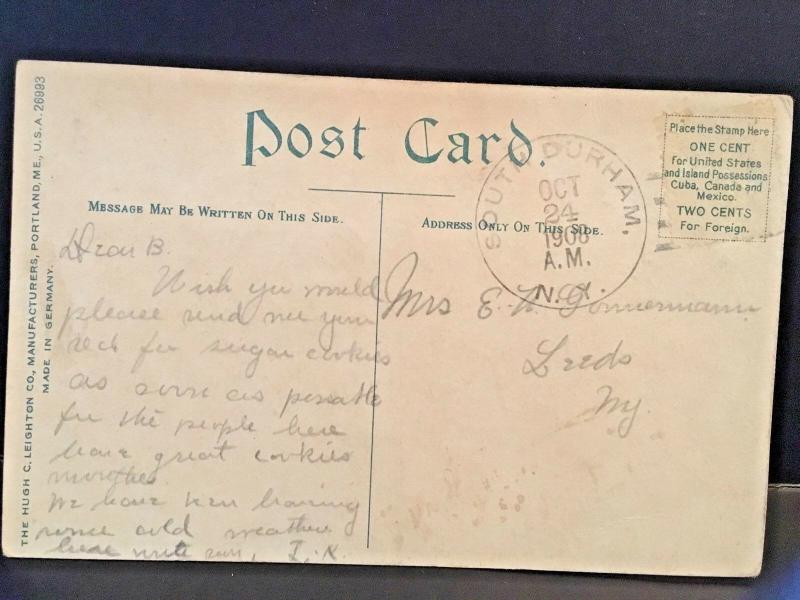 THE HUGH C. LEIGHTON CO., MANUFACTURERS, PORTLAND, ME., U.S.A. 26993
MADE IN GERMANY.
Post Card.
MESSAGE MAY BE WRITTEN ON THIS SIDE.
Dear B.
Wish you would
please send me your
rec for sugar cookies
as soon as possible
for the people here
have great cookies
We have been having
some cold weather
here write soon, I. K.
ADDRESS ONLY ON THIS SIDE.
Mrs E.
Leeds
Ny.
SOUTH DURHAM,
OCT
24
1908
A.M.
N.Y.
Place the Stamp Here
ONE CENT
For United States
and Island Possessions
Cuba, Canada and
Mexico.
TWO CENTS
For Foreign.